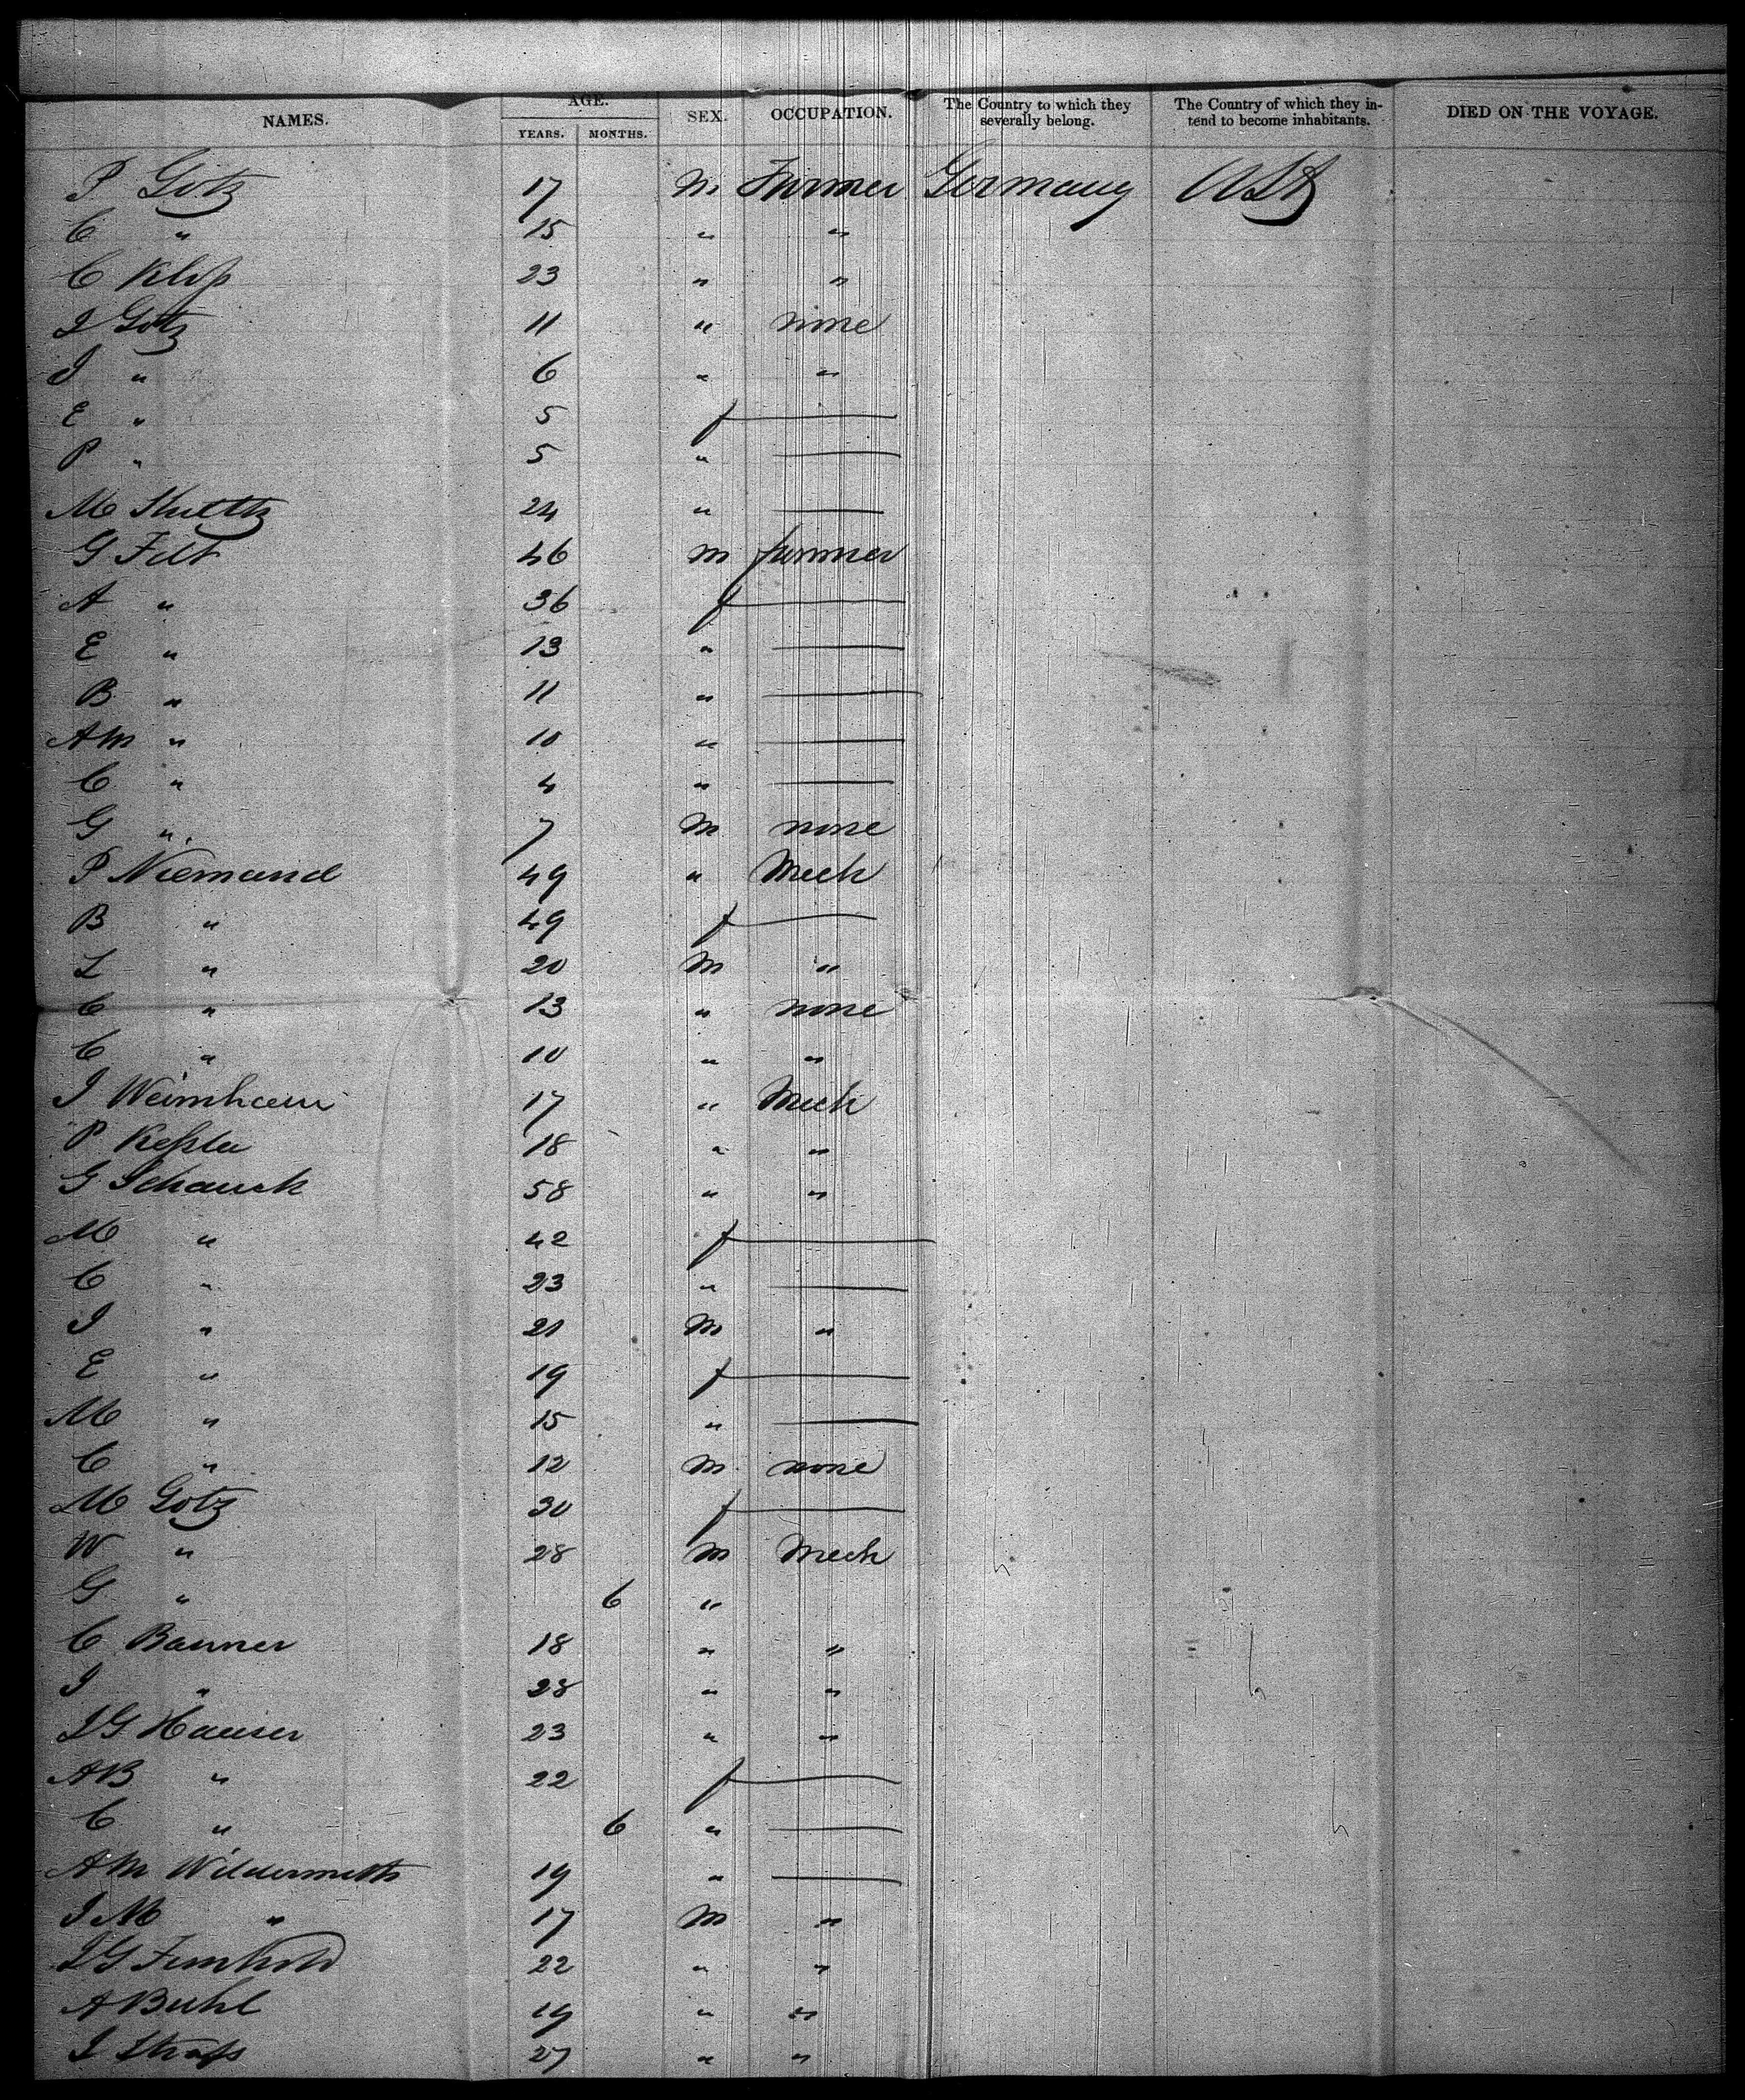 NAMES. AGE. SEX. OCCUPATION. The Country to which they severally belong. The Country of which they intend to become inhabitants. DIED ON THE VOYAGE.
YEARS. MONTHS.
P Götz 17 m Farmer Germany USA
C " 15 " "
C Klip 23 " "
J Götz 11 " none
J " 6 " "
E " 5 f —
P " 5 " —
M 24 " —
G Felt 46 m farmer
A " 36 f —
E " 13 " —
B " 11 " —
AM " 10 " —
C " 4 " —
G " 7 m none
P Niemand 49 " Mech
B " 49 f —
L " 20 m "
C " 13 " none
C " 10 " "
J 17 " Mech
P Keßler 18 " "
G Schauck 58 " "
M " 42 f —
C " 23 " —
J " 21 m "
E " 19 f —
M " 15 " —
C " 12 m none
M Götz 30 f —
W " 28 m Mech
G " 6 "
C Banner 18 " "
J " 28 " "
J G Hauser 23 " "
AB " 22 f —
C " 6 " —
AM Wildermuth 19 " —
J M " 17 m "
J G 22 " "
A Buhl 19 " "
J Straß 27 " "